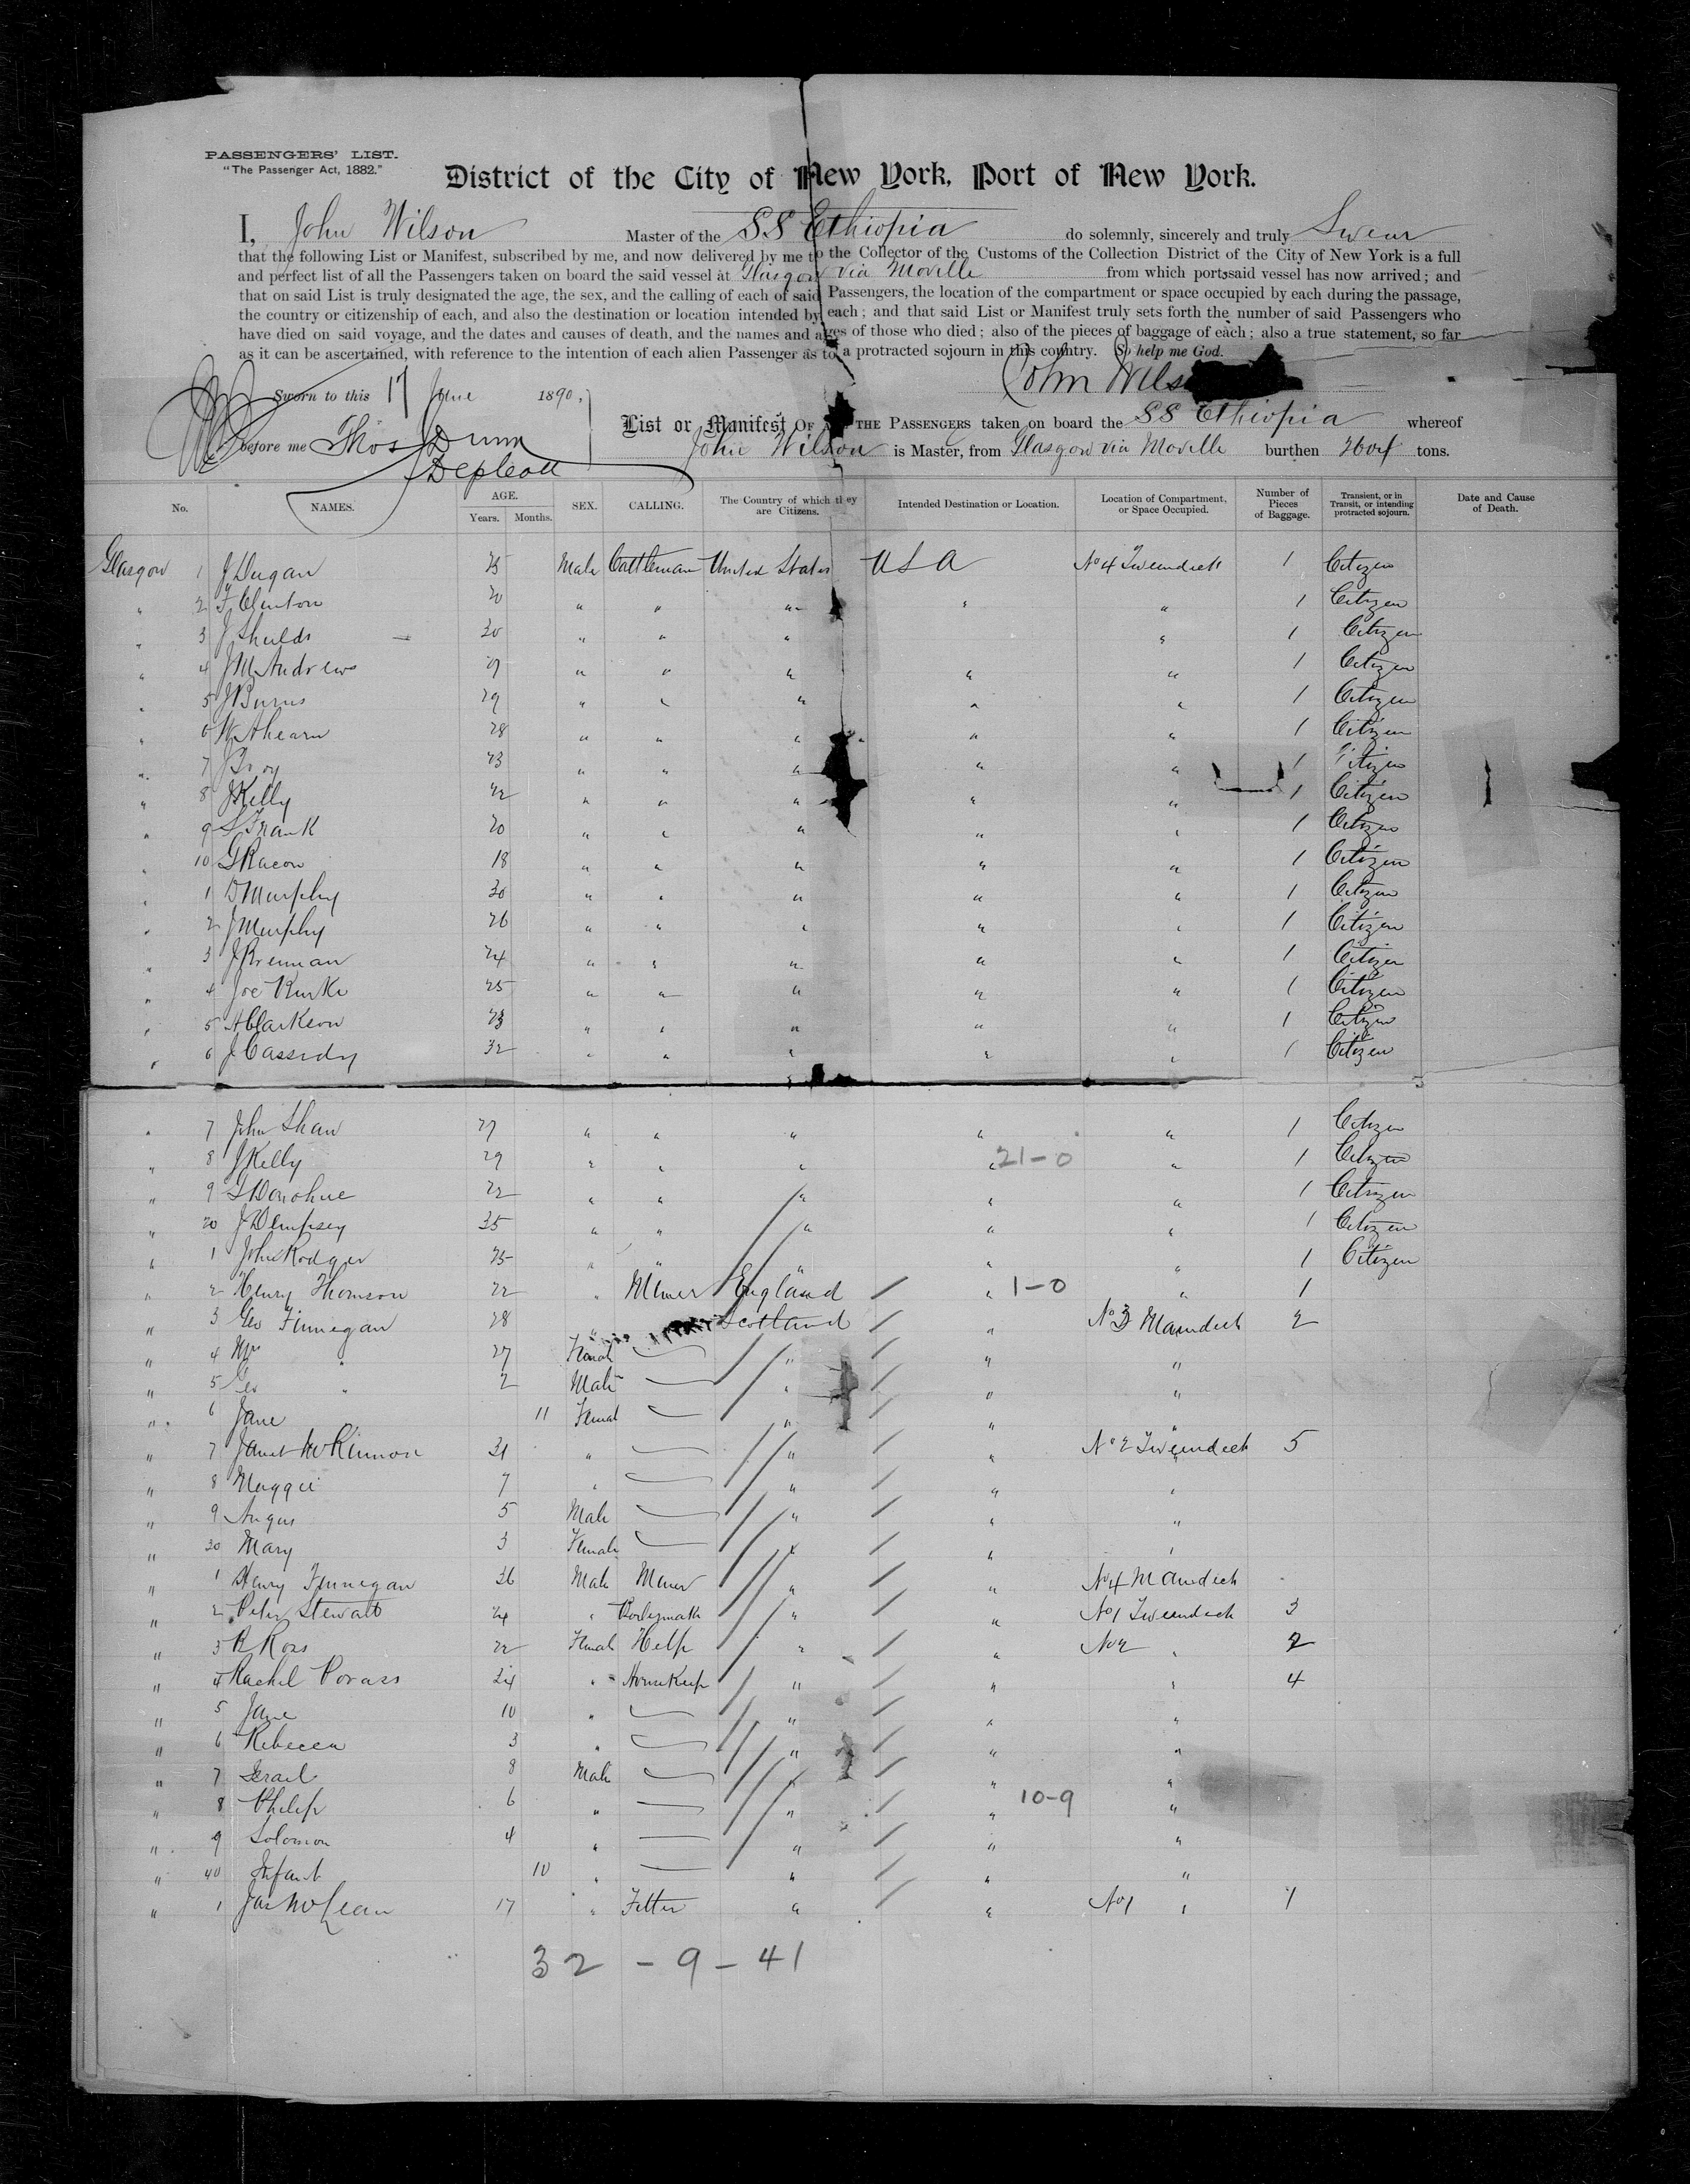 PASSENGERS' LIST.
"The Passenger Act, 1882."
District of the City of New York, Port of New York.
I, John Wilson Master of the SS Ethiopia do solemnly, sincerely and truly Swear
that the following List or Manifest, subscribed by me, and now delivered by me to the Collector of the Customs of the Collection District of the City of New York is a full
and perfect list of all the Passengers taken on board the said vessel at Glasgow via Moville from which ports said vessel has now arrived; and
that on said List is truly designated the age, the sex, and the calling of each of said Passengers, the location of the compartment or space occupied by each during the passage,
the country or citizenship of each, and also the destination or location intended by each; and that said List or Manifest truly sets forth the number of said Passengers who
have died on said voyage, and the dates and causes of death, and the names and ages of those who died; also of the pieces of baggage of each; also a true statement, so far
as it can be ascertained, with reference to the intention of each alien Passenger as to a protracted sojourn in this country. So help me God.
John Wils
Sworn to this 17 June 1890,
before me Thos Dunn
Dep Coll
List or Manifest OF ALL THE PASSENGERS taken on board the SS Ethiopia whereof
John Wilson is Master, from Glasgow via Moville burthen tons.
No. NAMES. AGE. Years. Months. SEX. CALLING. The Country of which they are Citizens. Intended Destination or Location. Location of Compartment, or Space Occupied. Number of Pieces of Baggage. Transient, or in Transit, or intending protracted sojourn. Date and Cause of Death.
Glasgow 1 J Dugan 25 Male Cattleman United States USA No 4 Tweendeck 1 Citizen
" 2 T Clinton 20 " " " " " 1 Citizen
" 3 J Shields 30 " " " " 1 Citizen
" 4 J McAndrews " " " " " 1 Citizen
" 5 J Burns 29 " " " " " 1 Citizen
" 6 W Ahearn 28 " " " " " 1 Citizen
" 7 J Troy 23 " " " " " 1 Citizen
" 8 J Kelly 22 " " " " " 1 Citizen
" 9 S Frank 20 " " " " " 1 Citizen
" 10 G Racow 18 " " " " " 1 Citizen
" 1 D Murphy 30 " " " " " 1 Citizen
" 2 J Murphy 26 " " " " " 1 Citizen
" 3 J Brennan 24 " " " " " 1 Citizen
" 4 Joe Burke 25 " " " " " 1 Citizen
" 5 A Clarkson 23 " " " " " 1 Citizen
" 6 J Cassidy 32 " " " " " 1 Citizen
" 7 John Shaw 27 " " " " " 1 Citizen
" 8 J Kelly 29 " " " " 21-0 " 1 Citizen
" 9 T Donohue 22 " " " " " 1 Citizen
" 20 J Dempsey 35 " " " " " 1 Citizen
" 1 John Rodger 25 " " " " " 1 Citizen
" 2 Henry Thomson 22 " Miner England " 1-0 " 1
" 3 Geo Finnegan 28 " Scotland " No 3 Maindeck 2
" 4 Mrs " 27 Female " " "
" 5 Geo " 2 Male " " "
" 6 Jane 11 Female " " "
" 7 Janet McKinnon 31 " " " No 2 Tweendeck 5
" 8 Maggie 7 " " " "
" 9 Angus 5 Male " " "
" 30 Mary 3 Female " " "
" 1 Henry Finnegan 26 Male Miner " " No 4 Maindeck
" 2 Peter Stewart 24 " " " No 1 Tweendeck 3
" 3 R Ross 22 Female Help " " No 2 " 2
" 4 Rachel Porass 34 " HouseKeep " " " 4
" 5 Jane 10 " " " "
" 6 Rebecca 3 " " " "
" 7 Israel 8 Male " " "
" 8 Philip 6 " " " 10-9 "
" 9 Solomon 4 " " " "
" 40 Infant 10 " " " "
" 1 Jas McLean 17 " Fitter " " No 1 " 1
32 - 9 - 41